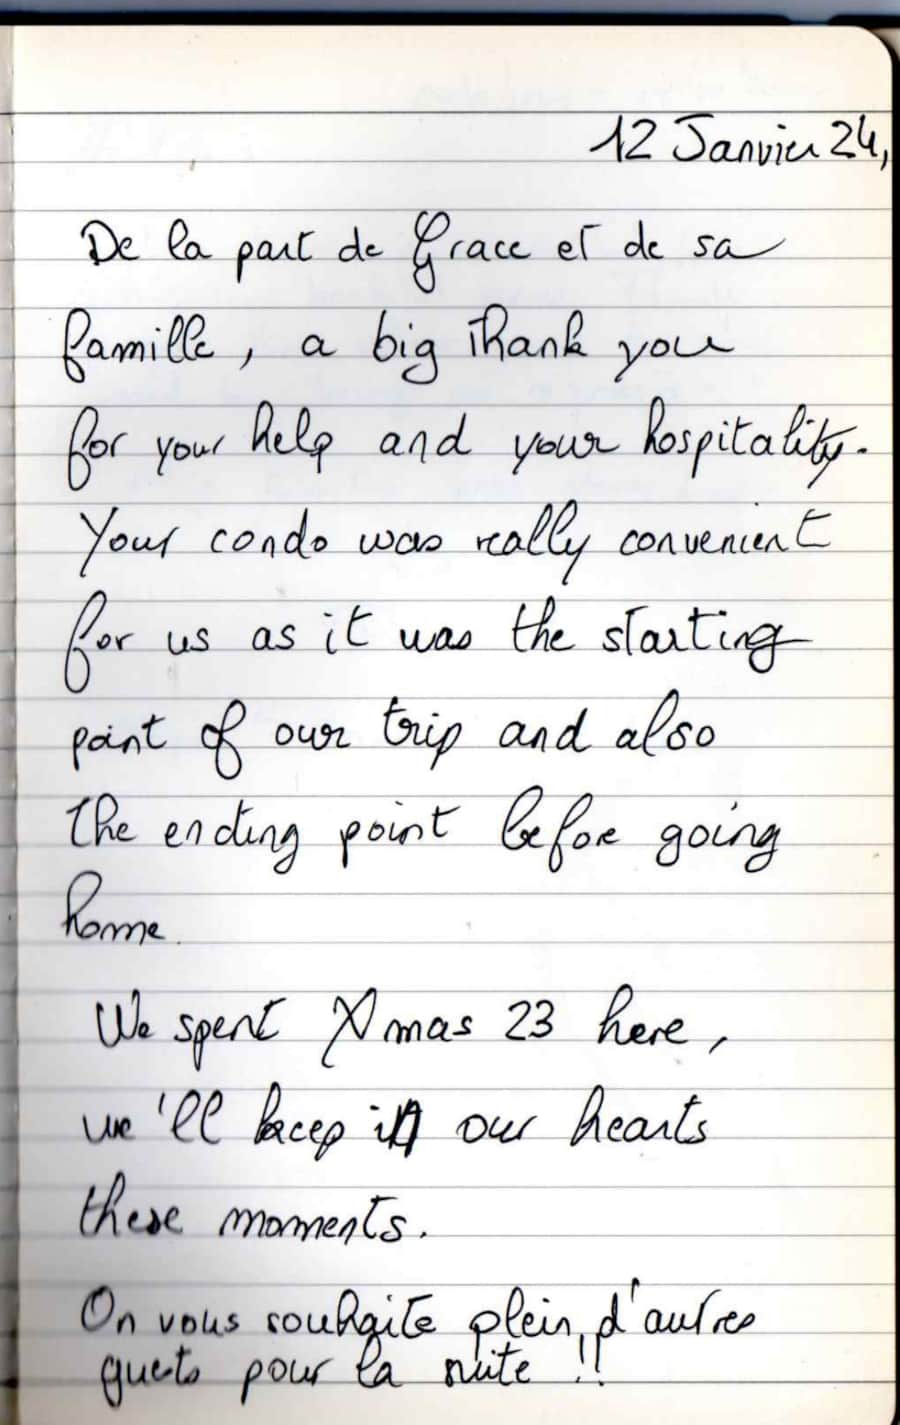 12 Janvier 24,
De la part de Grace et de sa
famille, a big thank you
for your help and your hospitality.
Your condo was really convenient
for us as it was the starting
point of our trip and also
the ending point before going
home.
We spent Xmas 23 here,
we'll keep in our hearts
these moments.
On vous souhaite plein d'autres
guests pour la suite !!